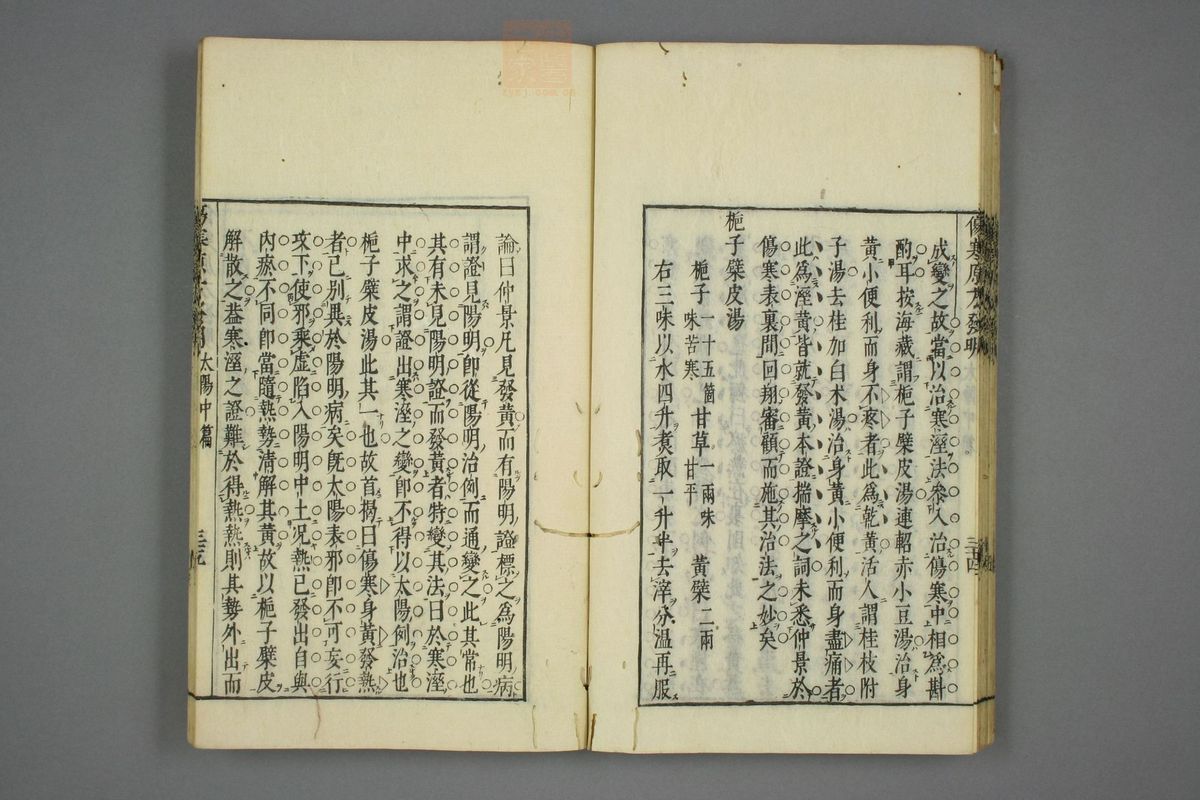 傷寒原文發明
成變之故當以治寒溼法叅入治傷寒中相爲斟
酌耳按海藏謂梔子蘗皮湯連軺赤小豆湯治身
黃小便利而身不疼者此爲乾黃活人謂桂枝附
子湯去桂加白术湯治身黃小便利而身盡痛者
此爲溼黃皆就發黃本證揣摩之詞未悉仲景於
傷寒表裏間回翔審顧而施其治法之妙矣
梔子蘗皮湯
梔子一十五箇 甘草一兩味
味苦寒 甘平 黃蘗二兩
右三味以水四升煑取一升半去滓分溫再服
三十四
論曰仲景凡見發黃而有陽明證標之爲陽明病
謂證見陽明卽從陽明治例而通變之此其常也
其有未見陽明證而發黃者特變其法曰於寒溼
中求之謂證出寒溼之變卽不得以太陽例治也
梔子蘗皮湯此其一也故首揭曰傷寒身黃發熱
者已别異於陽明病矣旣太陽表邪卽不可妄行
攻下使邪乘虛陷入陽明中土况熱已發出自與
內瘀不同卽當隨熱勢淸解其黃故以梔子蘗皮
解散之葢寒溼之證難於得熱熱則其勢外出而
太陽中篇
三十五